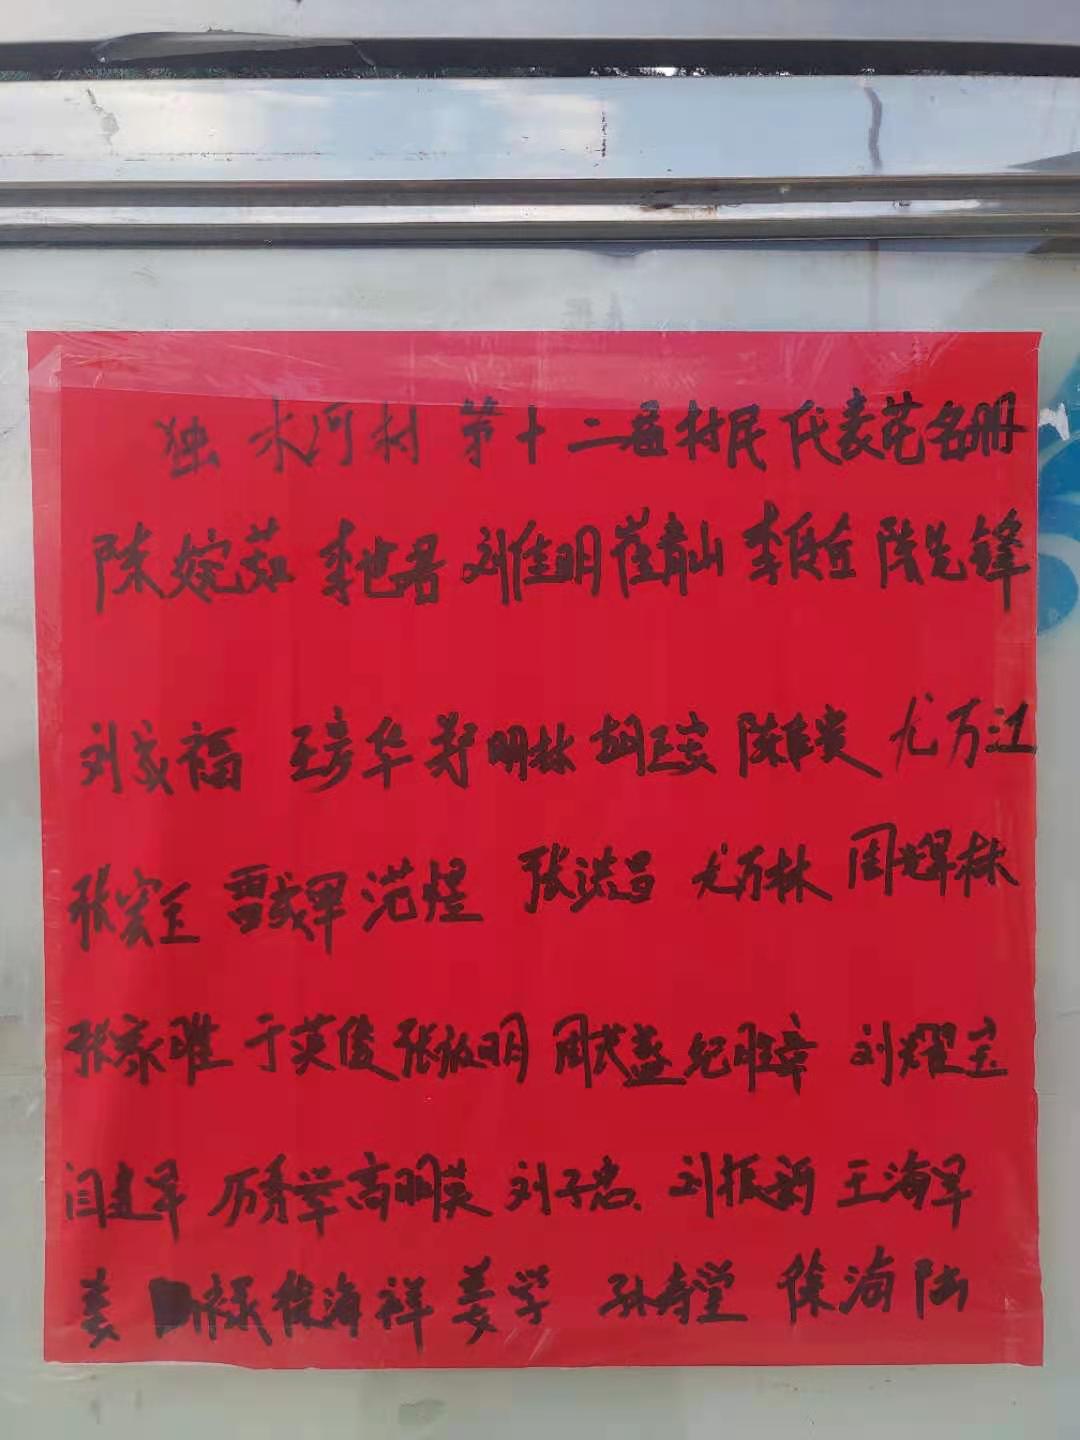 独木河村第十二届村民代表花名册
陈婉茹 李世君 刘佳明 崔青山 李氏金 陈先锋
刘成福 王彦华 郑明林 胡正宾 陈贵 尤万江
张宝玉 贾成军 范煜 张洪昌 尤万林 周耀林
张家雎 于英俊 张明 周茂盛 纪胜章 刘耀宝
闫建军 厉秀举 高明英 刘子忠 刘振新 王海军
姜禄 徐海祥 姜学 孙寿堂 徐海陆